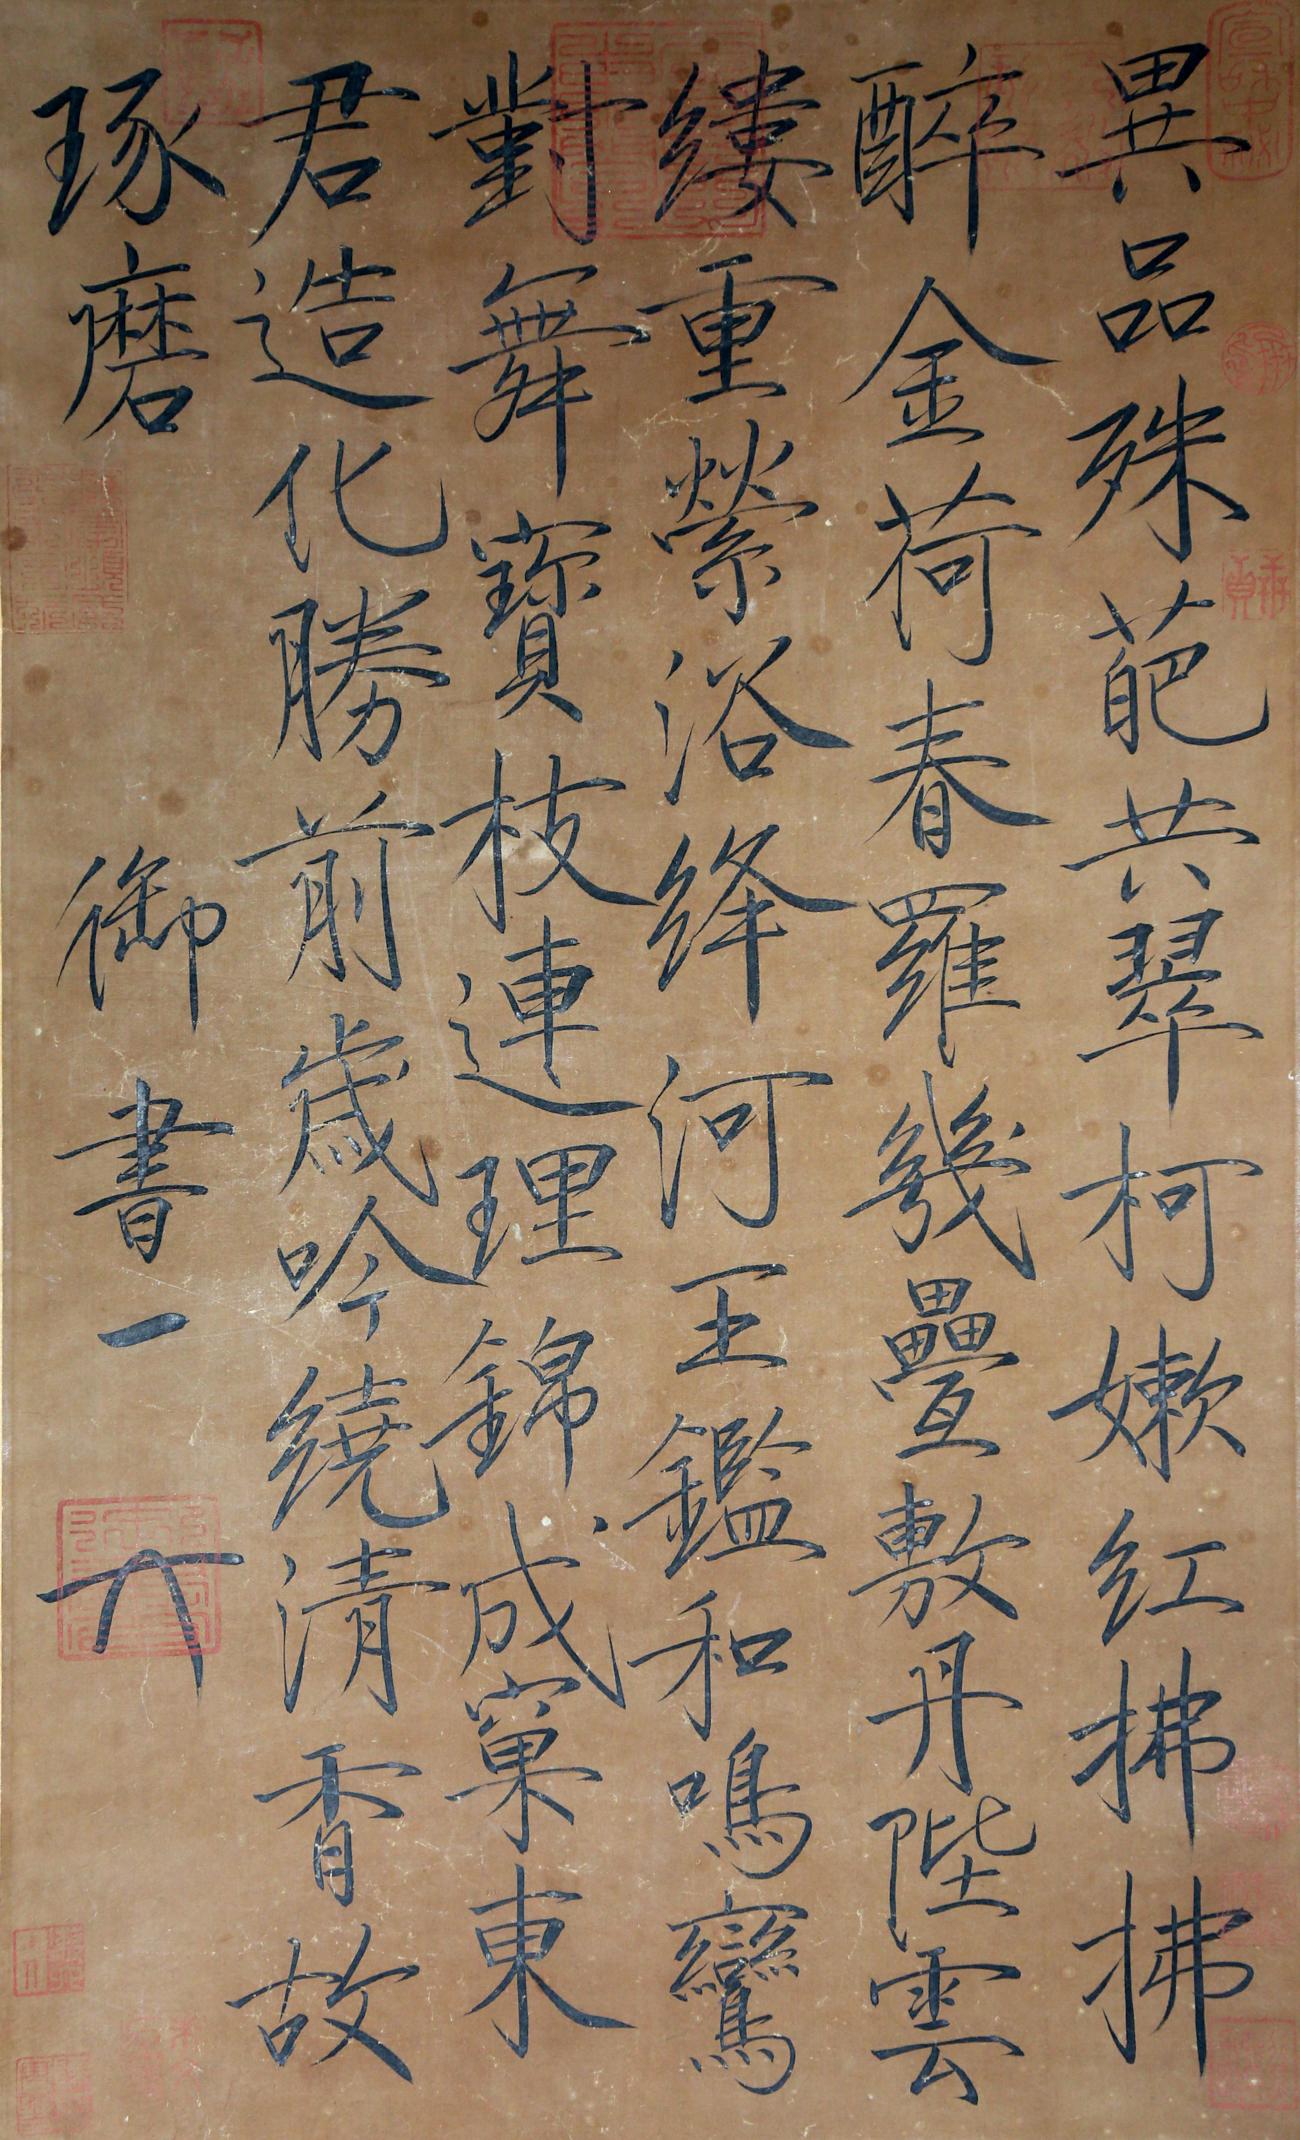 異品殊葩共翠柯嫰紅拂拂
醉金荷春羅幾疊敷丹陛雲
縷重縈浴絳河玉鑑和鳴鸞
對舞寶枝連理錦成窠東
君造化勝前歲吟繞清香故
琢磨
御書